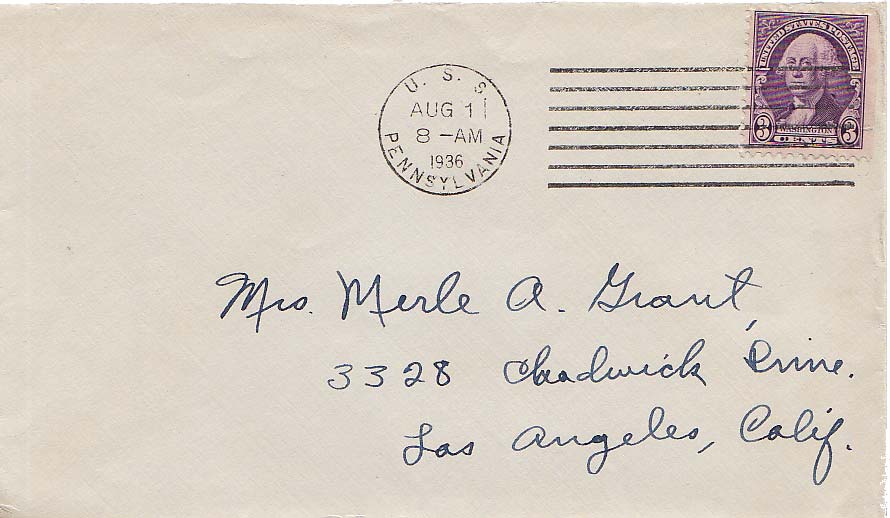 U. S. S.
AUG 11
8 - AM
1936
PENNSYLVANIA
UNITED STATES POSTAGE
3 WASHINGTON 3
CENTS
Mrs. Merle A. Grant,
3328 Chadwick Drive.
Los Angeles, Calif.